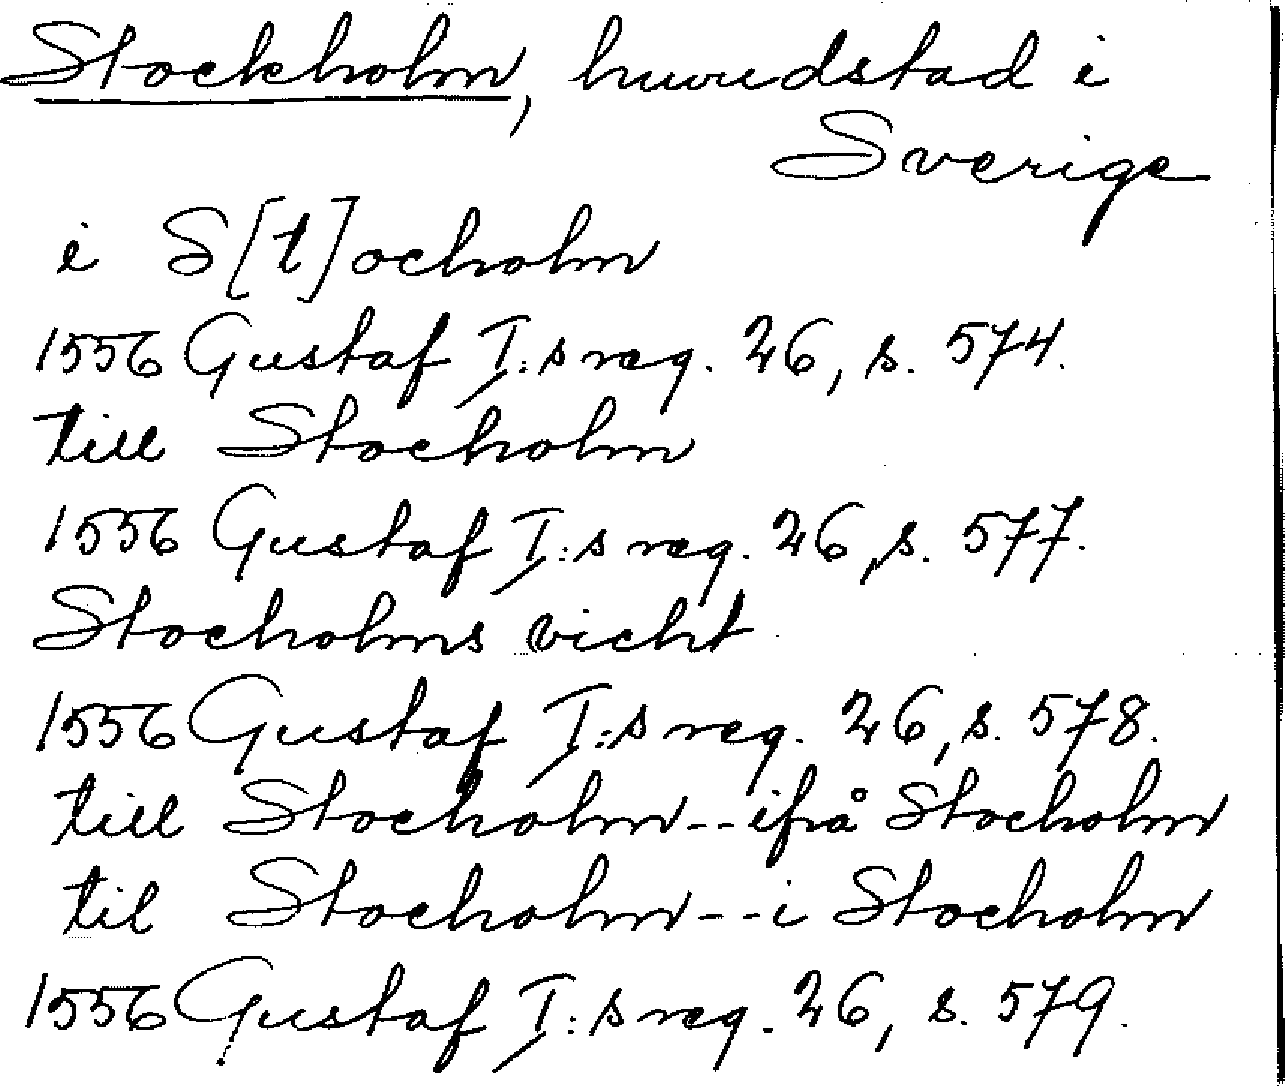 Stockholm, huvudstad i
Sverige
i S[t]ocholm
1556 Gustaf I:s reg. 26, s. 574.
till Stocholm
1556 Gustaf I:s reg. 26, s. 577.
Stocholms vicht
1556 Gustaf I:s reg. 26, s. 578.
till Stocholm--ifrå Stocholm
til Stocholm--i Stocholm
1556 Gustaf I:s reg. 26, s. 579.